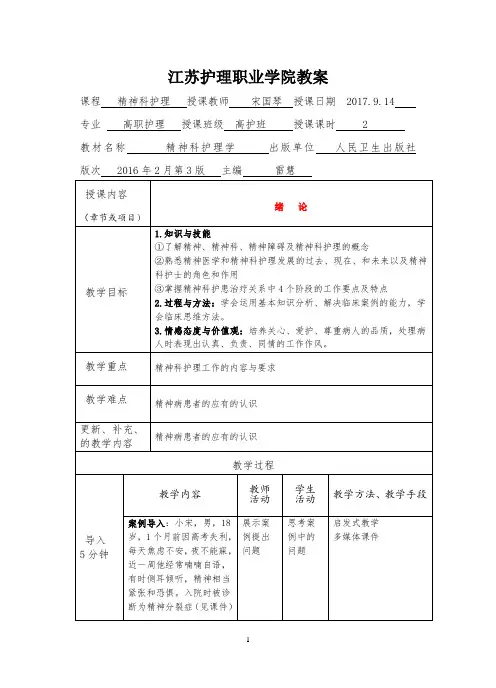 江苏护理职业学院教案
课程 精神科护理 授课教师 宋国琴 授课日期 2017.9.14
专业 高职护理 授课班级 高护班 授课课时 2
教材名称 精神科护理学 出版单位 人民卫生出版社
版次 2016年2月第3版 主编 雷慧
授课内容
（章节或项目）
绪 论
教学目标
1.知识与技能
①了解精神、精神科、精神障碍及精神科护理的概念
②熟悉精神医学和精神科护理发展的过去、现在、和未来以及精神
科护士的角色和作用
③掌握精神科护患治疗关系中4个阶段的工作要点及特点
2.过程与方法：学会运用基本知识分析、解决临床案例的能力，学
会临床思维方法。
3.情感态度与价值观：培养关心、爱护、尊重病人的品质，处理病
人时表现出认真、负责、同情的工作作风。
教学重点
精神科护理工作的内容与要求
教学难点
精神病患者的应有的认识
更新、补充、
的教学内容
精神病患者的应有的认识
教学过程
教学内容
教师
活动
学生
活动
教学方法、教学手段
导入
5分钟
案例导入：小宋，男，18
岁，1个月前因高考失利，
每天焦虑不安，夜不能寐，
近一周他经常喃喃自语，
有时侧耳倾听，精神相当
紧张和恐惧。入院时被诊
断为精神分裂症（见课件）
展示案
例提出
问题
思考案
例中的
问题
启发式教学
多媒体课件
1